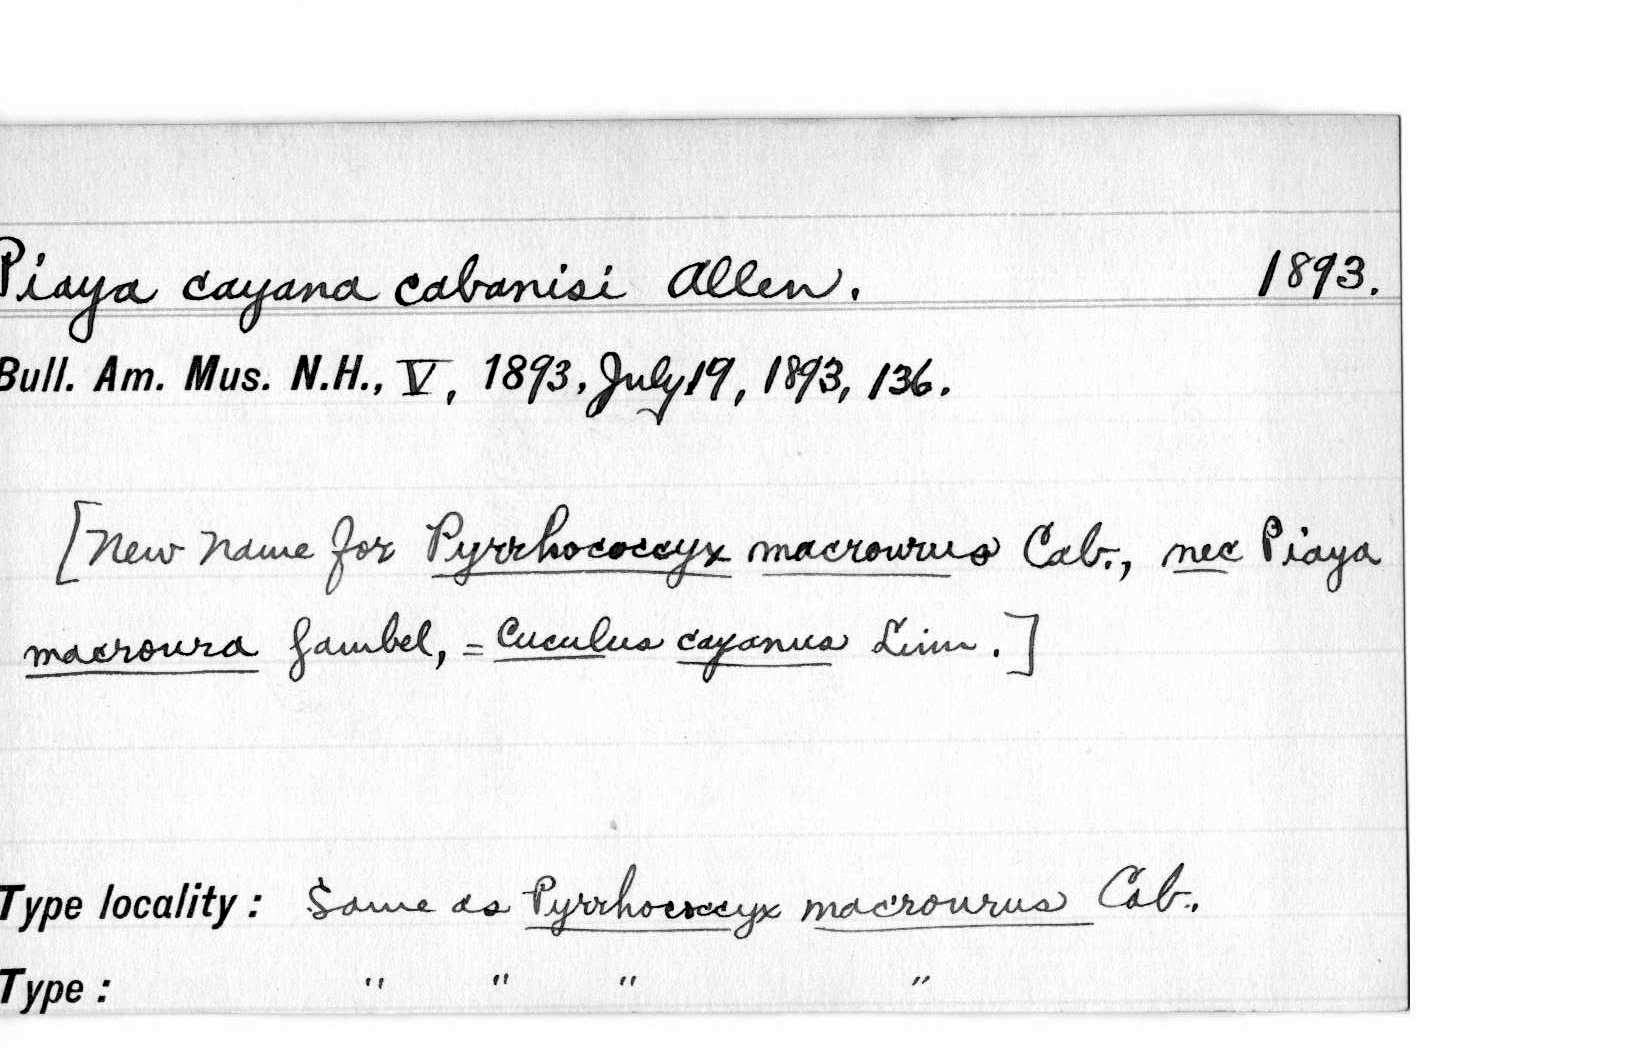 Piaya cayana cabanisi Allen. 1893.
Bull. Am. Mus. N.H., V, 1893, July 19, 1893, 136.
[New name for Pyrrhococcyx macrourus Cab., nec Piaya
macroura Gambel, = Cuculus cayanus Linn.]
Type locality: Same as Pyrrhococcyx macrourus Cab.
Type: " " " "